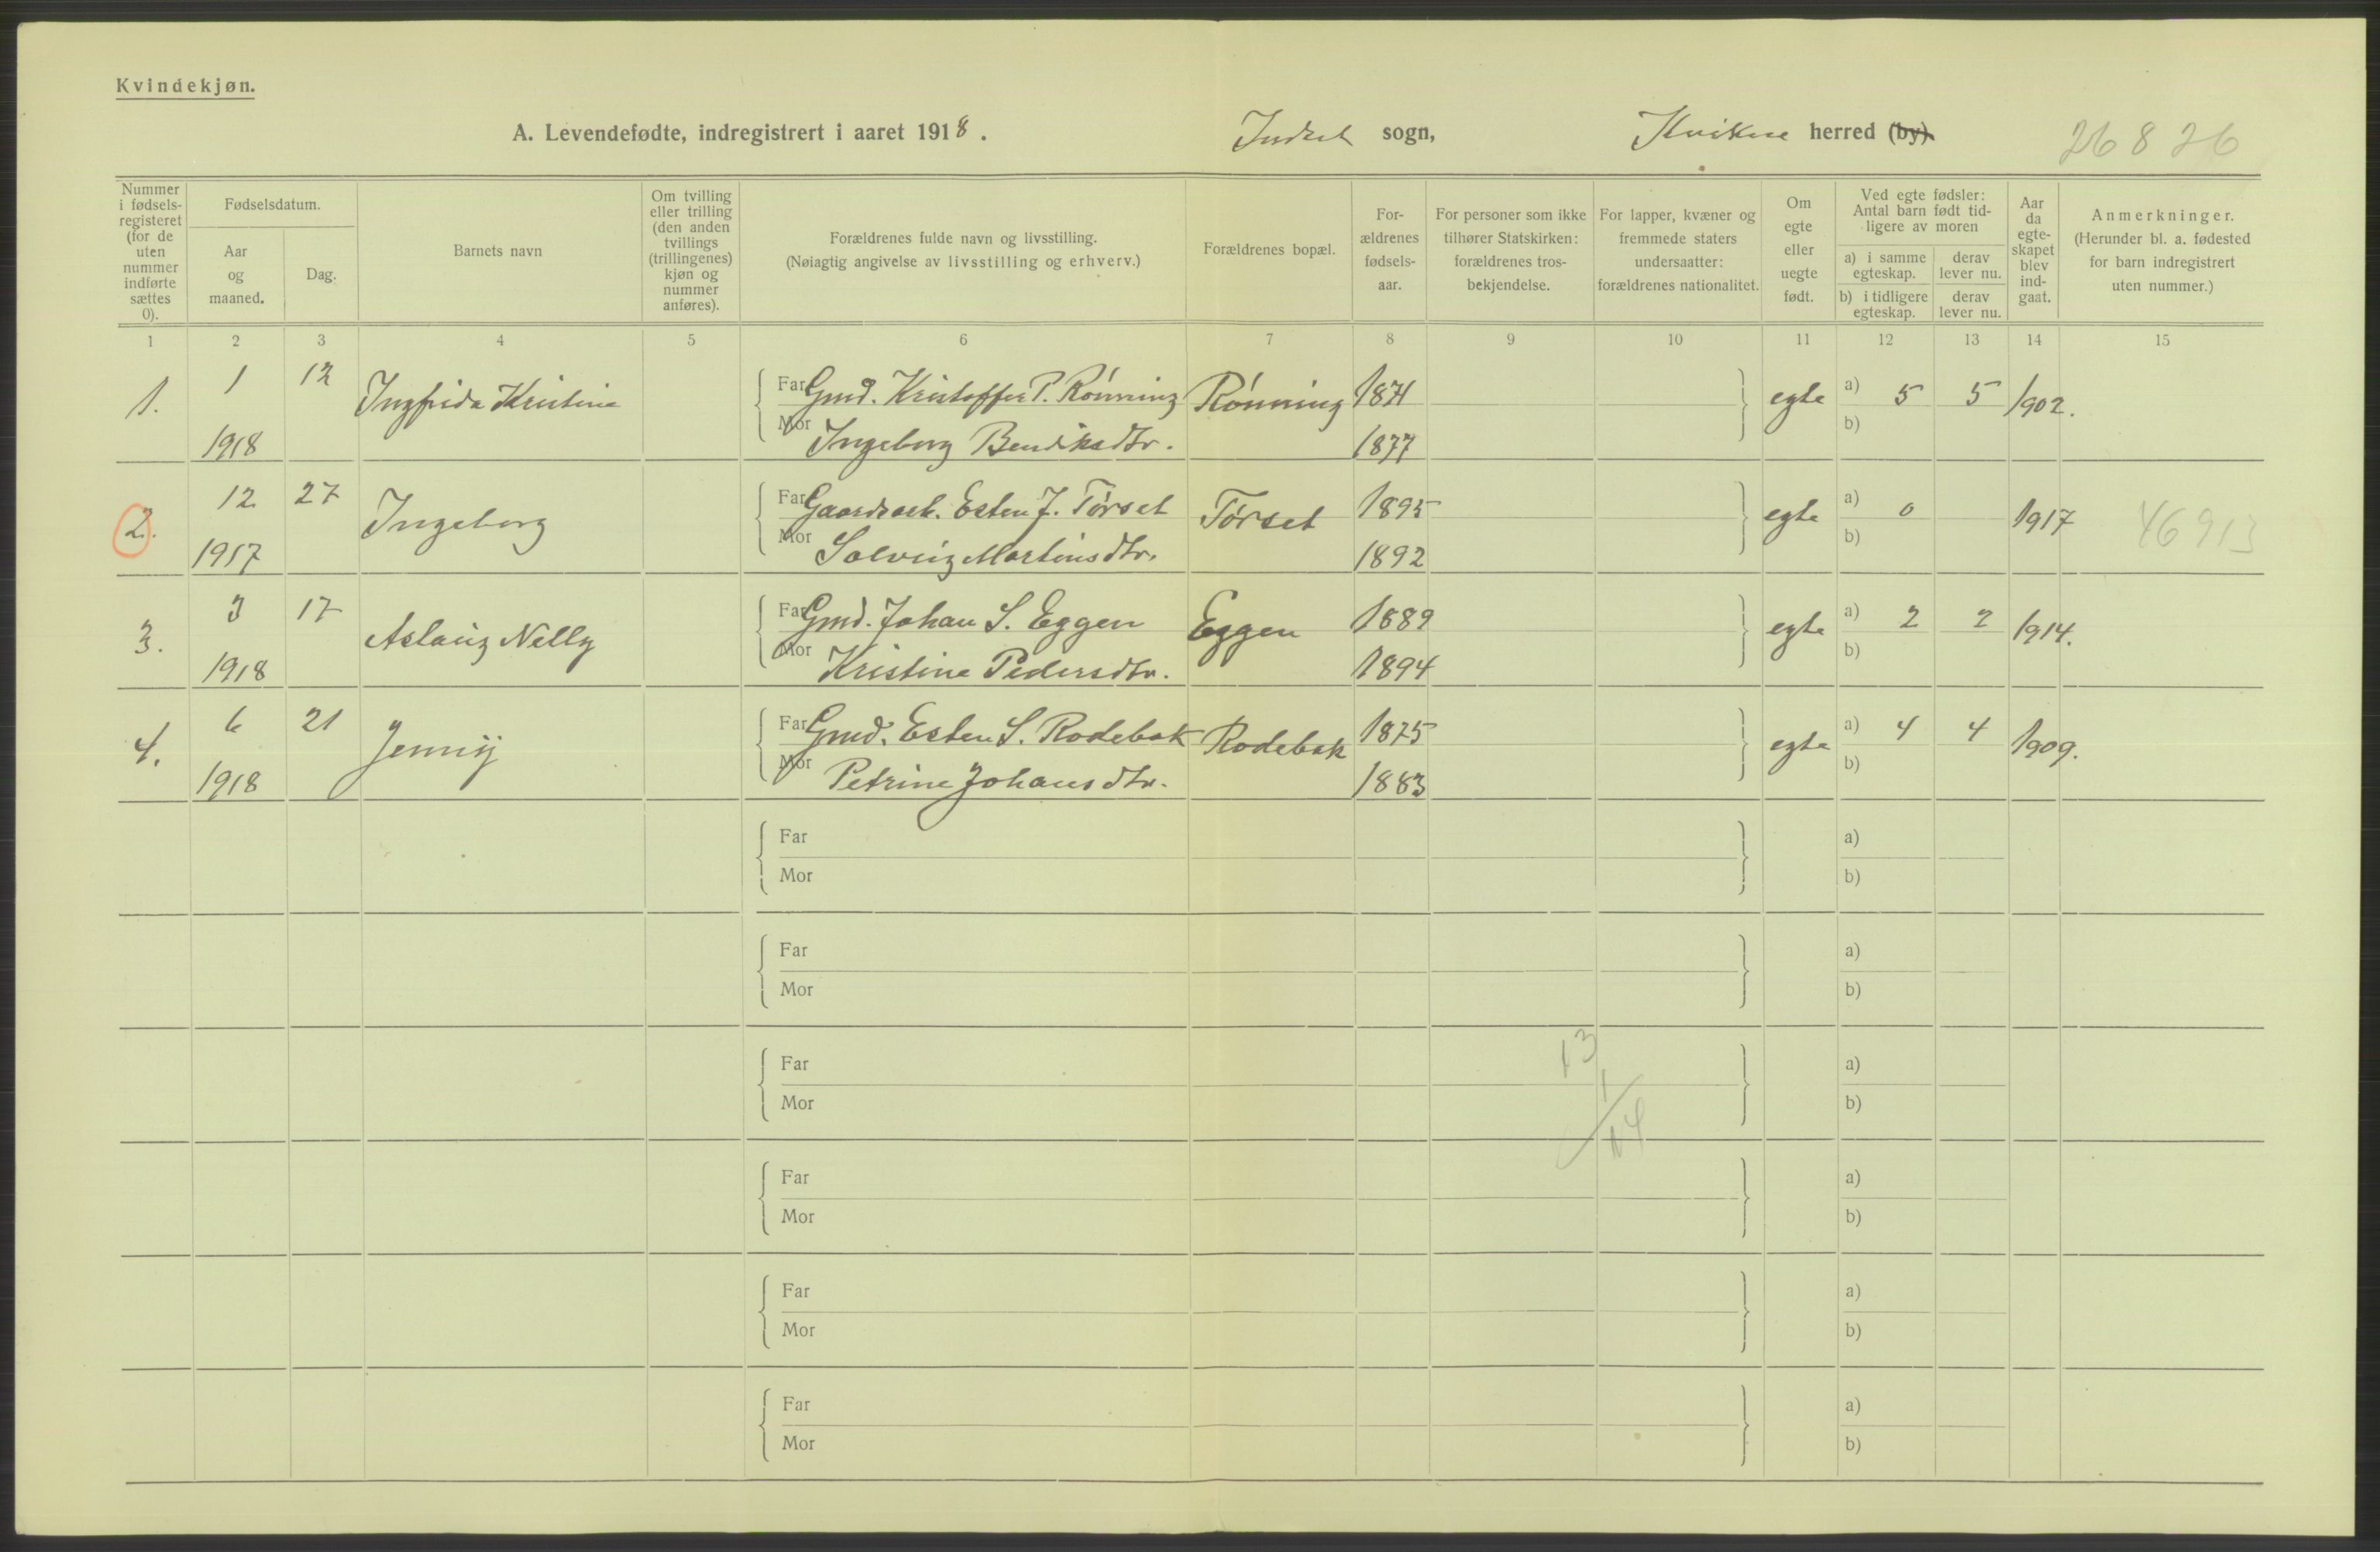 Kvindekjøn.
A. Levendefødte, indregistrert i aaret 1918. Indset sogn, Kvikne herred (by). 26826
Nummer i fødsels-registeret (for de uten nummer indførte sættes 0).
Fødselsdatum.
Aar og maaned.
Dag.
Barnets navn
Om tvilling eller trilling (den anden tvillings (trillingenes) kjøn og nummer anføres).
Forældrenes fulde navn og livsstilling.
(Nøiagtig angivelse av livsstilling og erhverv.)
Forældrenes bopæl.
For-ældrenes fødsels-aar.
For personer som ikke tilhører Statskirken: forældrenes tros-bekjendelse.
For lapper, kvæner og fremmede staters undersaatter: forældrenes nationalitet.
Om egte eller uegte født.
Ved egte fødsler: Antal barn født tid-ligere av moren
a) i samme egteskap.
derav lever nu.
b) i tidligere egteskap.
derav lever nu.
Aar da egte-skapet blev ind-gaat.
Anmerkninger.
(Herunder bl. a. fødested for barn indregistrert uten nummer.)
1 2 3 4 5 6 7 8 9 10 11 12 13 14 15
1. 1 12 Ingfrida Kristine Far Gmd. Kristoffer P. Rønning Rønning 1871 egte a) 5 5 1902.
1918 Mor Ingeborg Bendiksdtr. 1877 b)
2. 12 27 Ingeborg Far Gaardsarb. Esten J. Tørset Tørset 1895 egte a) 0 1917 46913
1917 Mor Solveig Martinsdtr. 1892 b)
3. 3 17 Aslaug Nelly Far Gmd. Johan S. Eggen Eggen 1889 egte a) 2 2 1914.
1918 Mor Kristine Pedersdtr. 1894 b)
4. 6 21 Jenny Far Gmd. Esten S. Rodebak Rodebak 1875 egte a) 4 4 1909.
1918 Mor Petrine Johansdtr. 1883 b)
Far a)
Mor b)
Far a)
Mor b)
Far 13 a)
Mor 1/14 b)
Far a)
Mor b)
Far a)
Mor b)
Far a)
Mor b)